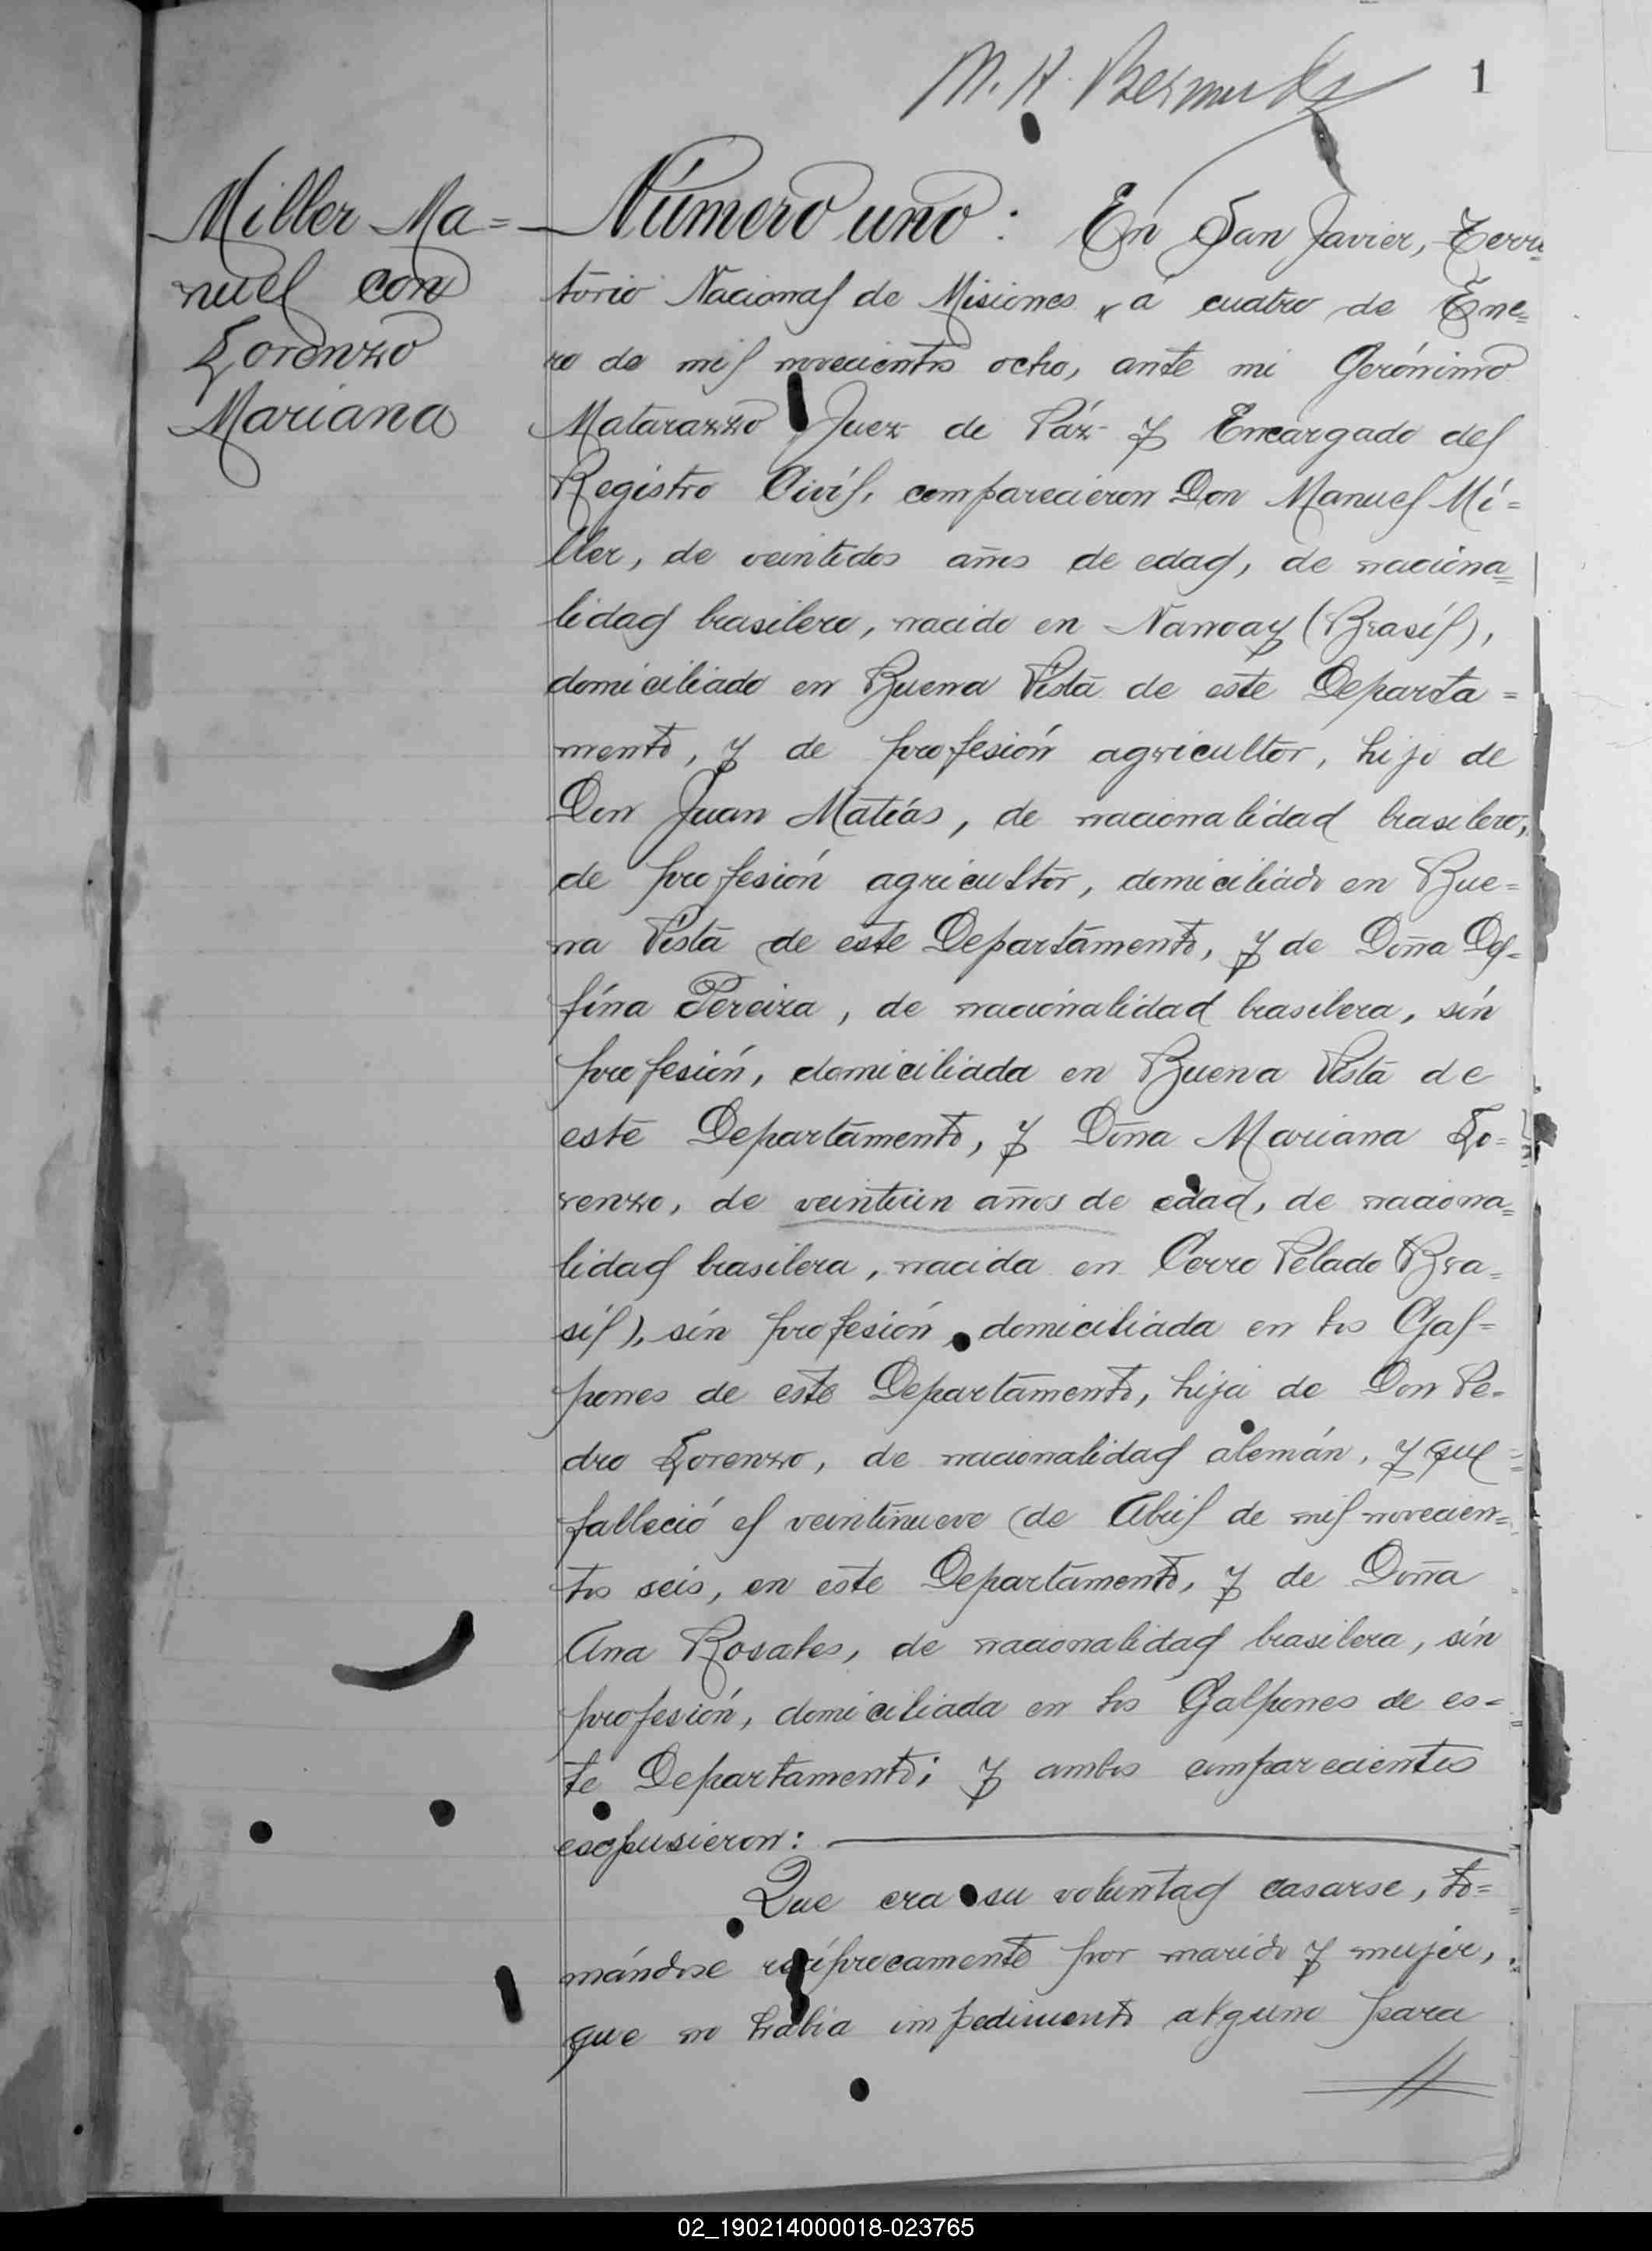 M. R. Bermudez
1
Miller Ma=
nuel con
Lorenzo
Mariana
Número uno: En San Javier, Terri=
torio Nacional de Misiones, á cuatro de Ene=
ro de mil novecientos ocho, ante mi Gerónimo
Matarazzo Juez de Páz y Encargado del
Registro Civil, comparecieron Don Manuel Mi=
ller, de veintidos años de edad, de naciona=
lidad brasilero, nacido en Nanoay (Brasil),
domiciliado en Buena Vista de este Departa=
mento, y de profesión agricultor, hijo de
Don Juan Matías, de nacionalidad brasilero,
de profesión agricultor, domiciliado en Bue=
na Vista de este Departamento, y de Doña Del=
fina Pereira, de nacionalidad brasilera, sin
profesión, domiciliada en Buena Vista de
este Departamento, y Doña Mariana Lo=
renzo, de veintiun años de edad, de naciona=
lidad brasilera, nacida en Cerro Pelado Bra=
sil), sin profesión, domiciliada en los Gal=
pones de este Departamento, hija de Don Pe=
dro Lorenzo, de nacionalidad alemán, y que
falleció el veintinueve de Abril de mil novecien=
tos seis, en este Departamento, y de Doña
Ana Rosales, de nacionalidad brasilera, sin
profesión, domiciliada en los Galpones de es=
te Departamento; y ambos comparecientes
expusieron:
Que era su voluntad casarse, to=
mándose recíprocamente por marido y mujer,
que no habia impedimento alguno para
02_190214000018-023765